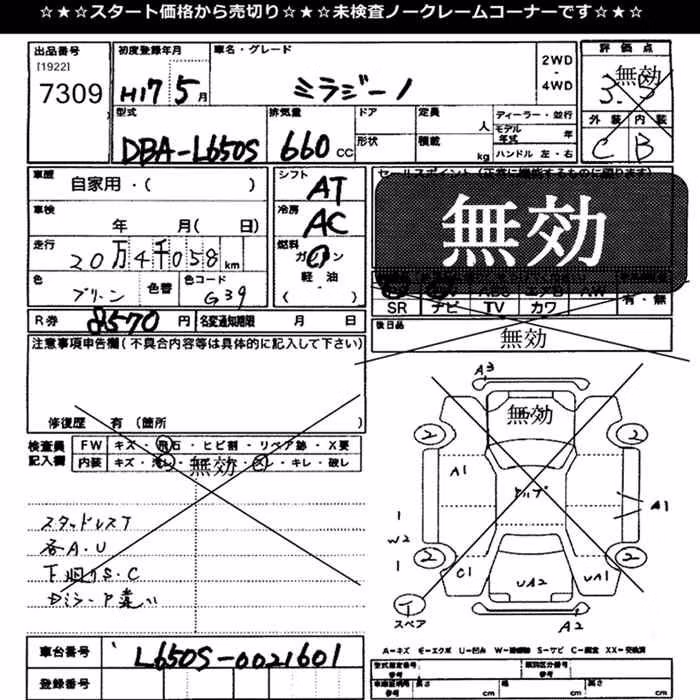 ☆★☆スタート価格から売切り☆★☆未検査ノークレームコーナーです☆★☆
出品番号
[1922]
7309
初度登録年月
H17 5月
車名・グレード
ミラジーノ
2WD
・
4WD
評価点
無効
3.
外装 内装
C B
型式
DBA-L650S
排気量
660 CC
ドア
形状
定員
人
積載
kg
ディーラー・並行
モデル年式 年
ハンドル 左・右
車歴
自家用・( )
車検
年 月( 日)
走行
20万4千058km
色
グリーン
色替
色コード
G39
シフト
AT
冷房
AC
燃料
ガソリン
軽油
( )
セールスポイント (正常に機能するものに限ります)
無効
SR ナビ TV カワ 有・無
後日品
無効
R券 8570 円 名変通知期限 月 日
注意事項申告欄(不具合内容等は具体的に記入して下さい)
修復歴 有 (箇所 )
検査員記入欄
FW キズ・飛石・ヒビ割・リペア跡・X要
内装 キズ・汚レ・ ・コゲ・キレ・破レ
無効
スタッドレスT
各A・U
下廻りS・C
Dミラー P違い
A3
無効
2 2
A1
A1
W2
2 2
C1
UA2
UA1
T
スペア
A2
車台番号 L650S-0021601
登録番号
A=キズ E=エクボ U=凹み W=補修跡 S=サビ C=腐食 XX=交換済
型式指定番号 参考
類別区分番号 参考
車庫証明用 参考 長さ cm 幅 cm 高さ cm